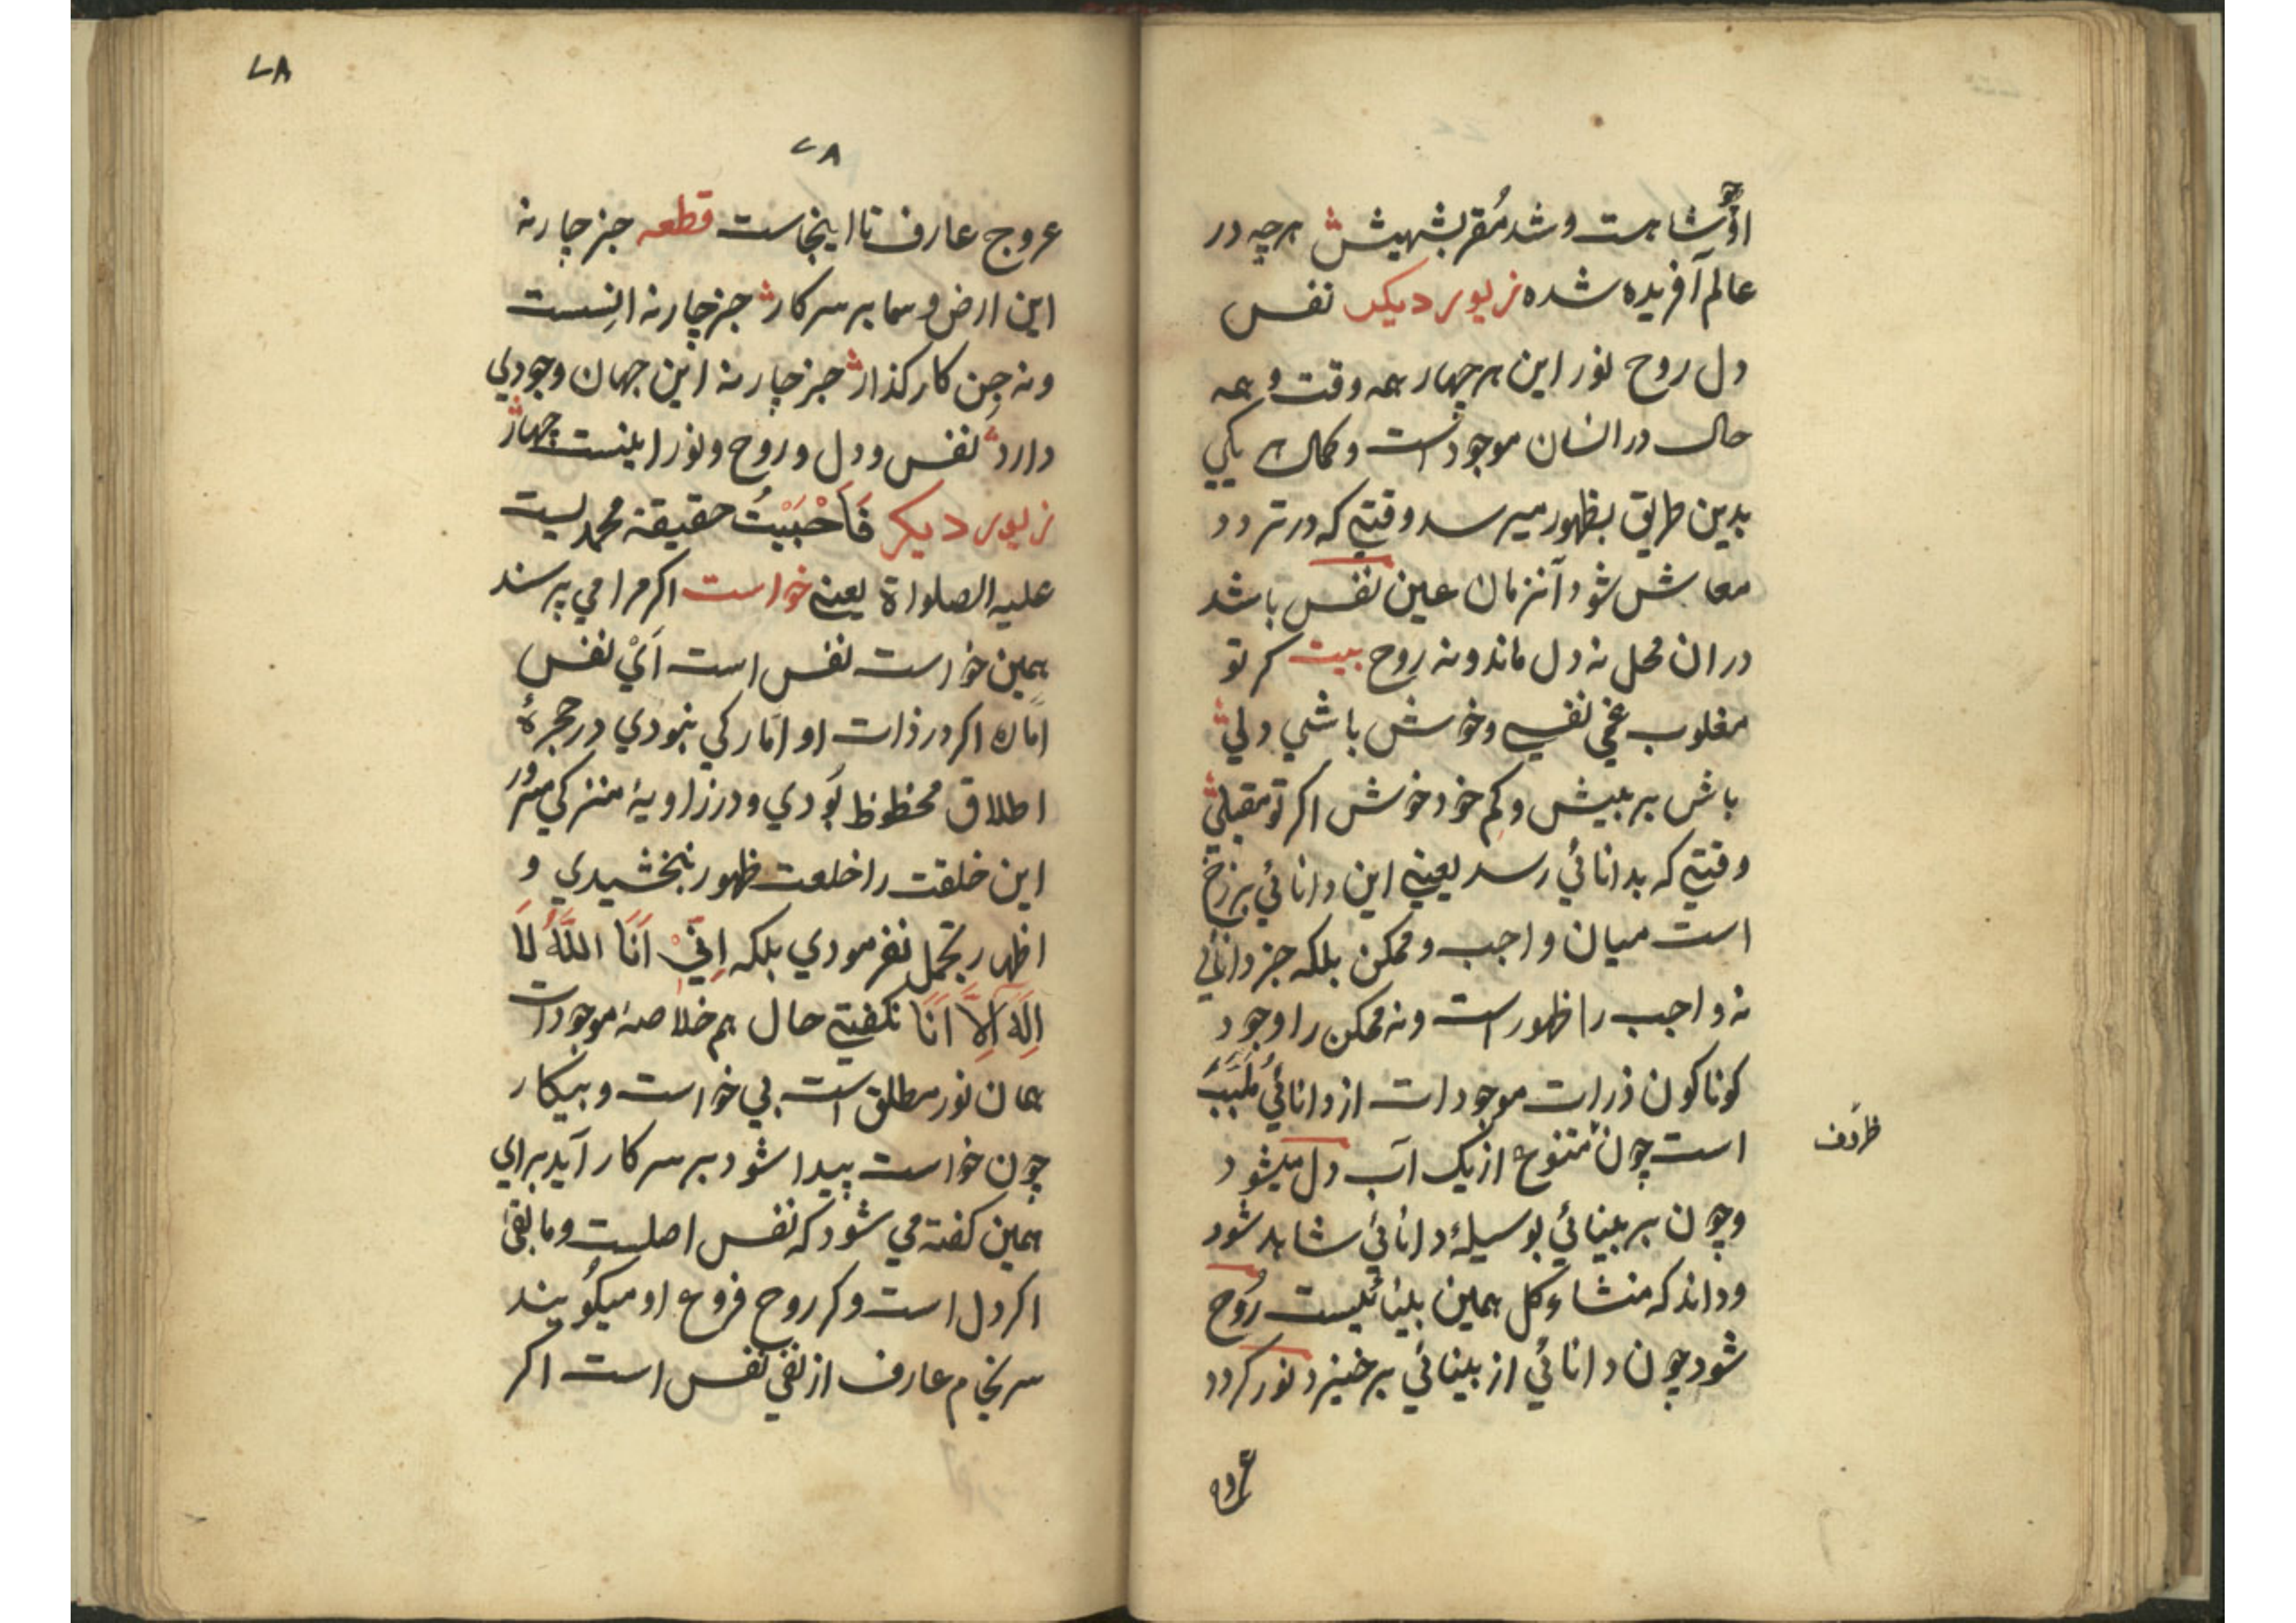 اوچو شاهست و شد مُقر بشهیش هرچه در
عالم آفریده شده زیور دیکر نفس
دل روح نور این هر چهار همه وقت و همه
حال در انسان موجود است و کمال هر یکی
بدین طریق بظهور میرسد وقتیکه در تردد
معاش شود آنزمان عین نفس باشد
دران محل نه دل ماند و نه روح بیت کر تو
مغلوب نفسی و خوش باشی ولی
باش بر بیش و کم خود خوش اکر تو مقبلی
وقتیکه بدانائی رسد یعنی این دانائی برزخ
است میان واجب و ممکن بلکه جز دانائی
نه واجب را ظهور است و نه ممکن را وجود
کوناکون ذرات موجودات از دانائی
است چون متنوع از یک آب دل میشود
و چون بر بینائی بوسیلهٔ دانائی شاهد شود
و داند که منشاء کل همین بینائیست رُوح
شود چون دانائی از بینائی برخیزد نور کردد
ظروف
عروج
۷۸
۷۸
عروج عارف تا اینجاست قطعه جز چار نه
این ارض و سما بر سر کار جز چار نه انسست
و نه جن کار کذار جز چار نه این جهان وجودی
دارد نفس و دل و روح و نور اینست چهار
زیور دیکر فَاَحْبَبْتُ حقیقة محمدیست
علیه الصلواة یعنی خواست اکر مرا می پرسند
همین خواست نفس است اَیْ نفس
امّاره اکر در ذات او امّارکی نبودی در حجرهٔ
اطلاق محظوظ بودی و در زاویهٔ منزکی مسرور
این خلقت را خلعت ظهور نبخشیدی و
اظهار تجمل نفرمودی بلکه اِنِّیْ اَنَا اللّٰهُ لَا
اِلٰهَ اِلَّا اَنَا نکفتی حال هم خلاصهٔ موجودات
همان نور مطلق است بی خواست و بیکار
چون خواست پیدا شود بر سر کار آید برای
همین کفته می شود که نفس اصلست و مابقی
اکر دل است و کر روح فروع او میکویند
سرنجام عارف از نفی نفس است اکر